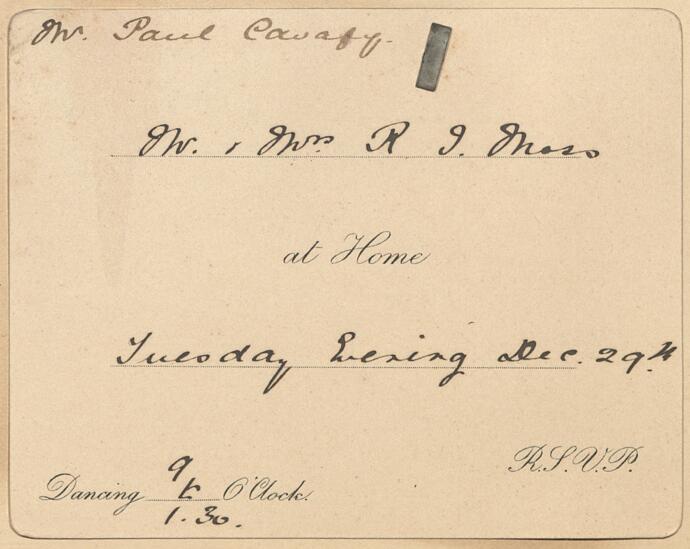 Mr. Paul Cavafy.
Mr. & Mrs R. J. Moss
at Home
Tuesday Evening Dec. 29th
R.S.V.P.
9
Dancing to O'Clock.
1.30.